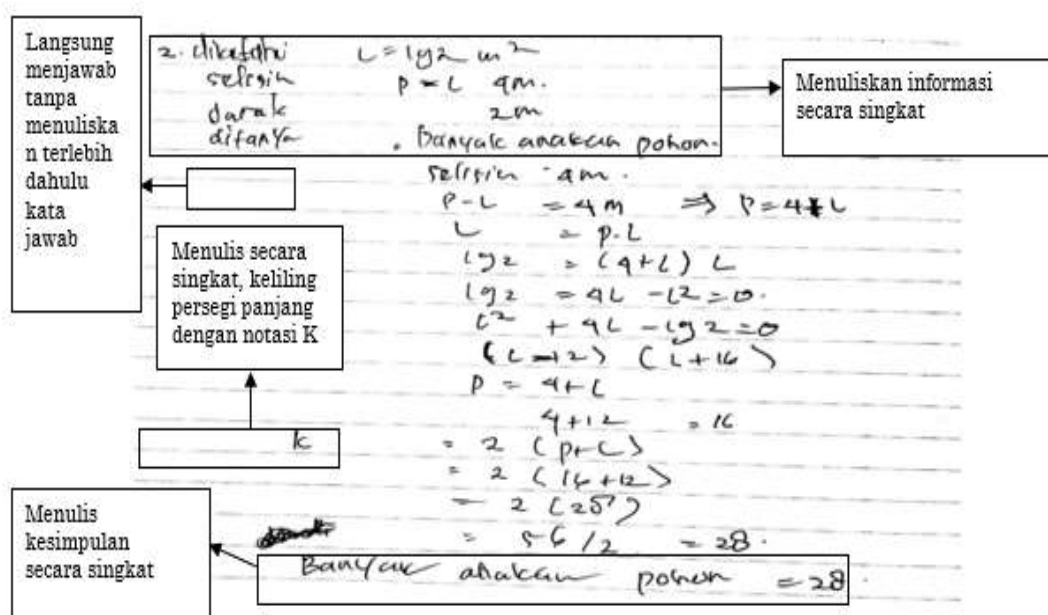 Langsung
menjawab
tanpa
menuliska
n terlebih
dahulu
kata
jawab
2. diketahui L = 192 m²
selisih P - L 4m.
Jarak 2m
ditanya . Banyak anakan pohon.
Menuliskan informasi
secara singkat
selisih 4m.
P-L = 4m ⇒ P=4+L
L = P.L
192 = (4+L) L
192 = 4L - L2 = 0.
L² + 4L - 192 = 0
(L-12) (L+16)
P = 4+L
4+12 = 16
Menulis secara
singkat, keliling
persegi panjang
dengan notasi K
k
= 2 (P+L)
= 2 (16+12)
= 2 (28)
= 56/2 = 28.
Menulis
kesimpulan
secara singkat
Banyak anakan pohon = 28.